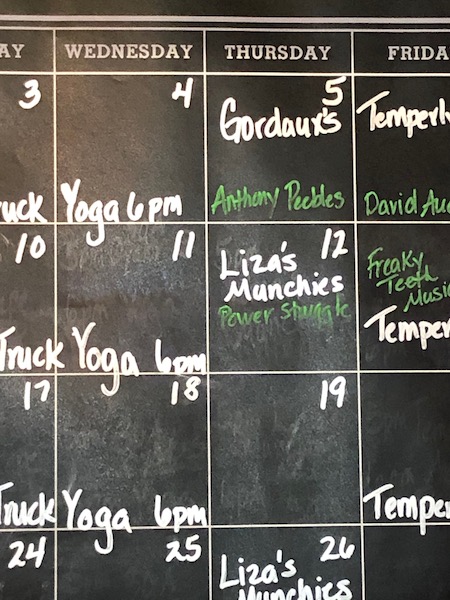 AY WEDNESDAY THURSDAY FRIDA
3 4 5
Gordaux's Temperl
ruck Yoga 6pm Anthony Peebles David Au
10 11 12
Liza's Freaky
Munchies Teeth
Power Struggle Music
Temper
Truck Yoga 6pm
17 18 19
Truck Yoga 6pm Temper
24 25 26
Liza's
Munchies